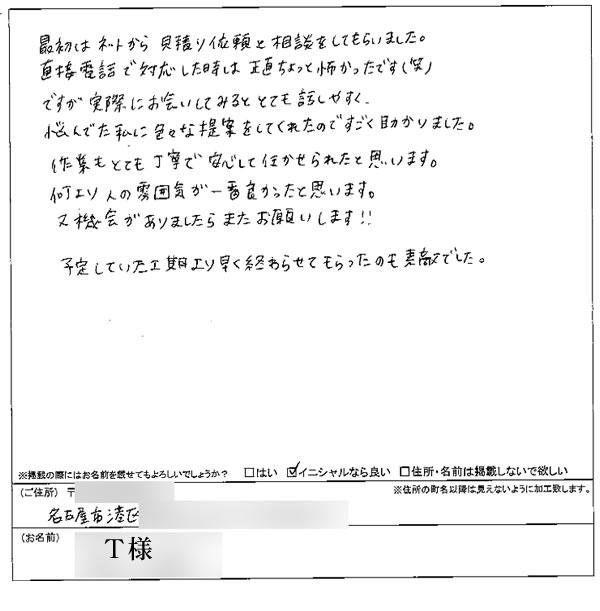 最初はネットから見積り依頼と相談をしてもらいました。
直接電話で対応した時は正直ちょっと怖かったです(笑)
ですが実際にお会いしてみるととても話しやすく、
悩んでた私に色々な提案をしてくれたのですごく助かりました。
作業もとても丁寧で安心して任かせられたと思います。
何より人の雰囲気が一番良かったと思います。
又機会がありましたらまたお願いします!!
予定していた工期より早く終わらせてもらったのも素敵でした。
※掲載の際にはお名前を載せてもよろしいでしょうか? □はい ☑イニシャルなら良い □住所・名前は掲載しないで欲しい
(ご住所) 〒 ※住所の町名以降は見えないように加工致します。
名古屋市港区
(お名前) T様